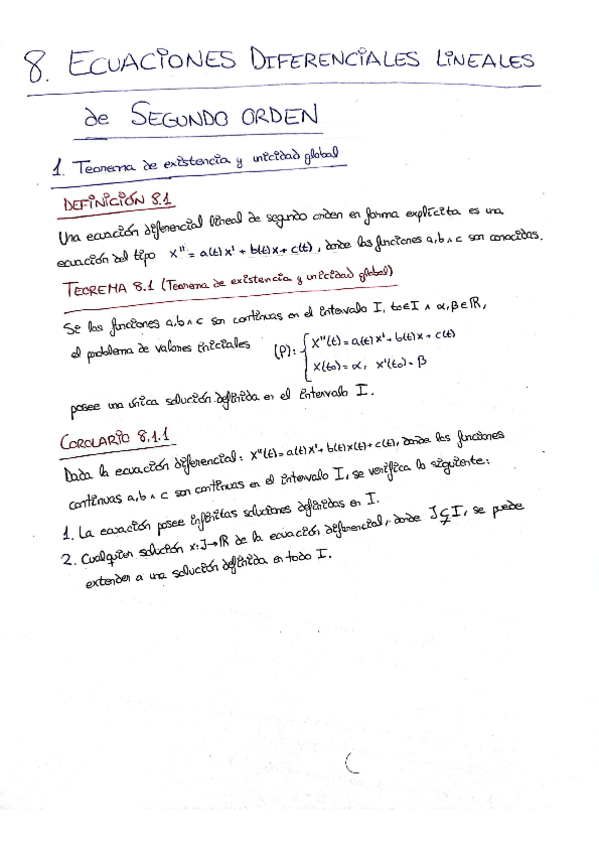 8. ECUACIONES DIFERENCIALES LINEALES
de SEGUNDO ORDEN
1. Teorema de existencia y unicidad global
DEFINICIÓN 8.1
Una ecuación diferencial lineal de segundo orden en forma explícita es una
ecuación del tipo x'' = a(t)x' + b(t)x + c(t), donde las funciones a, b ∧ c son conocidas.
TEOREMA 8.1 (Teorema de existencia y unicidad global)
Se las funciones a, b ∧ c son continuas en el intervalo I, t₀∈I ∧ α, β∈ℝ,
el problema de valores iniciales (P): { x''(t) = a(t)x' + b(t)x + c(t)
x(t₀) = α, x'(t₀) = β
posee una única solución definida en el intervalo I.
COROLARIO 8.1.1
Dada la ecuación diferencial: x''(t) = a(t)x' + b(t)x(t) + c(t), donde las funciones
continuas a, b ∧ c son continuas en el intervalo I, se verifica lo siguiente:
1. La ecuación posee infinitas soluciones definidas en I.
2. Cualquier solución x: J→ℝ de la ecuación diferencial, donde J⊊I, se puede
extender a una solución definida en todo I.